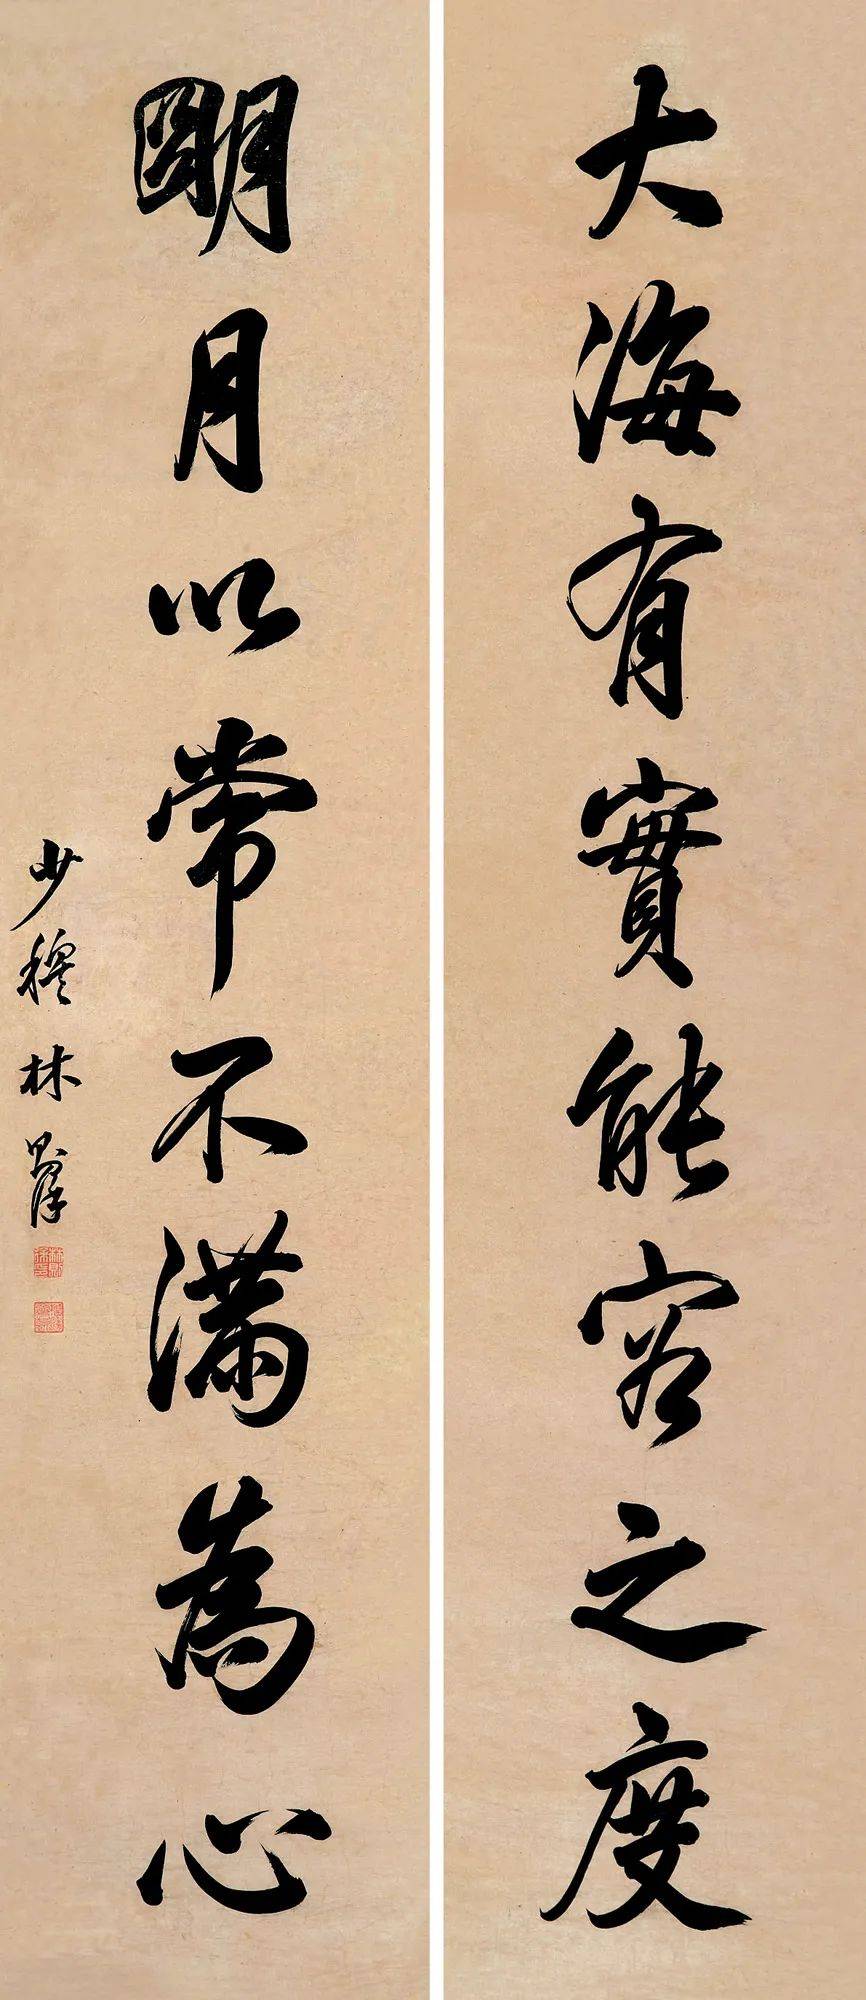 大海有實能容之度
明月以常不滿為心
少穆林則徐